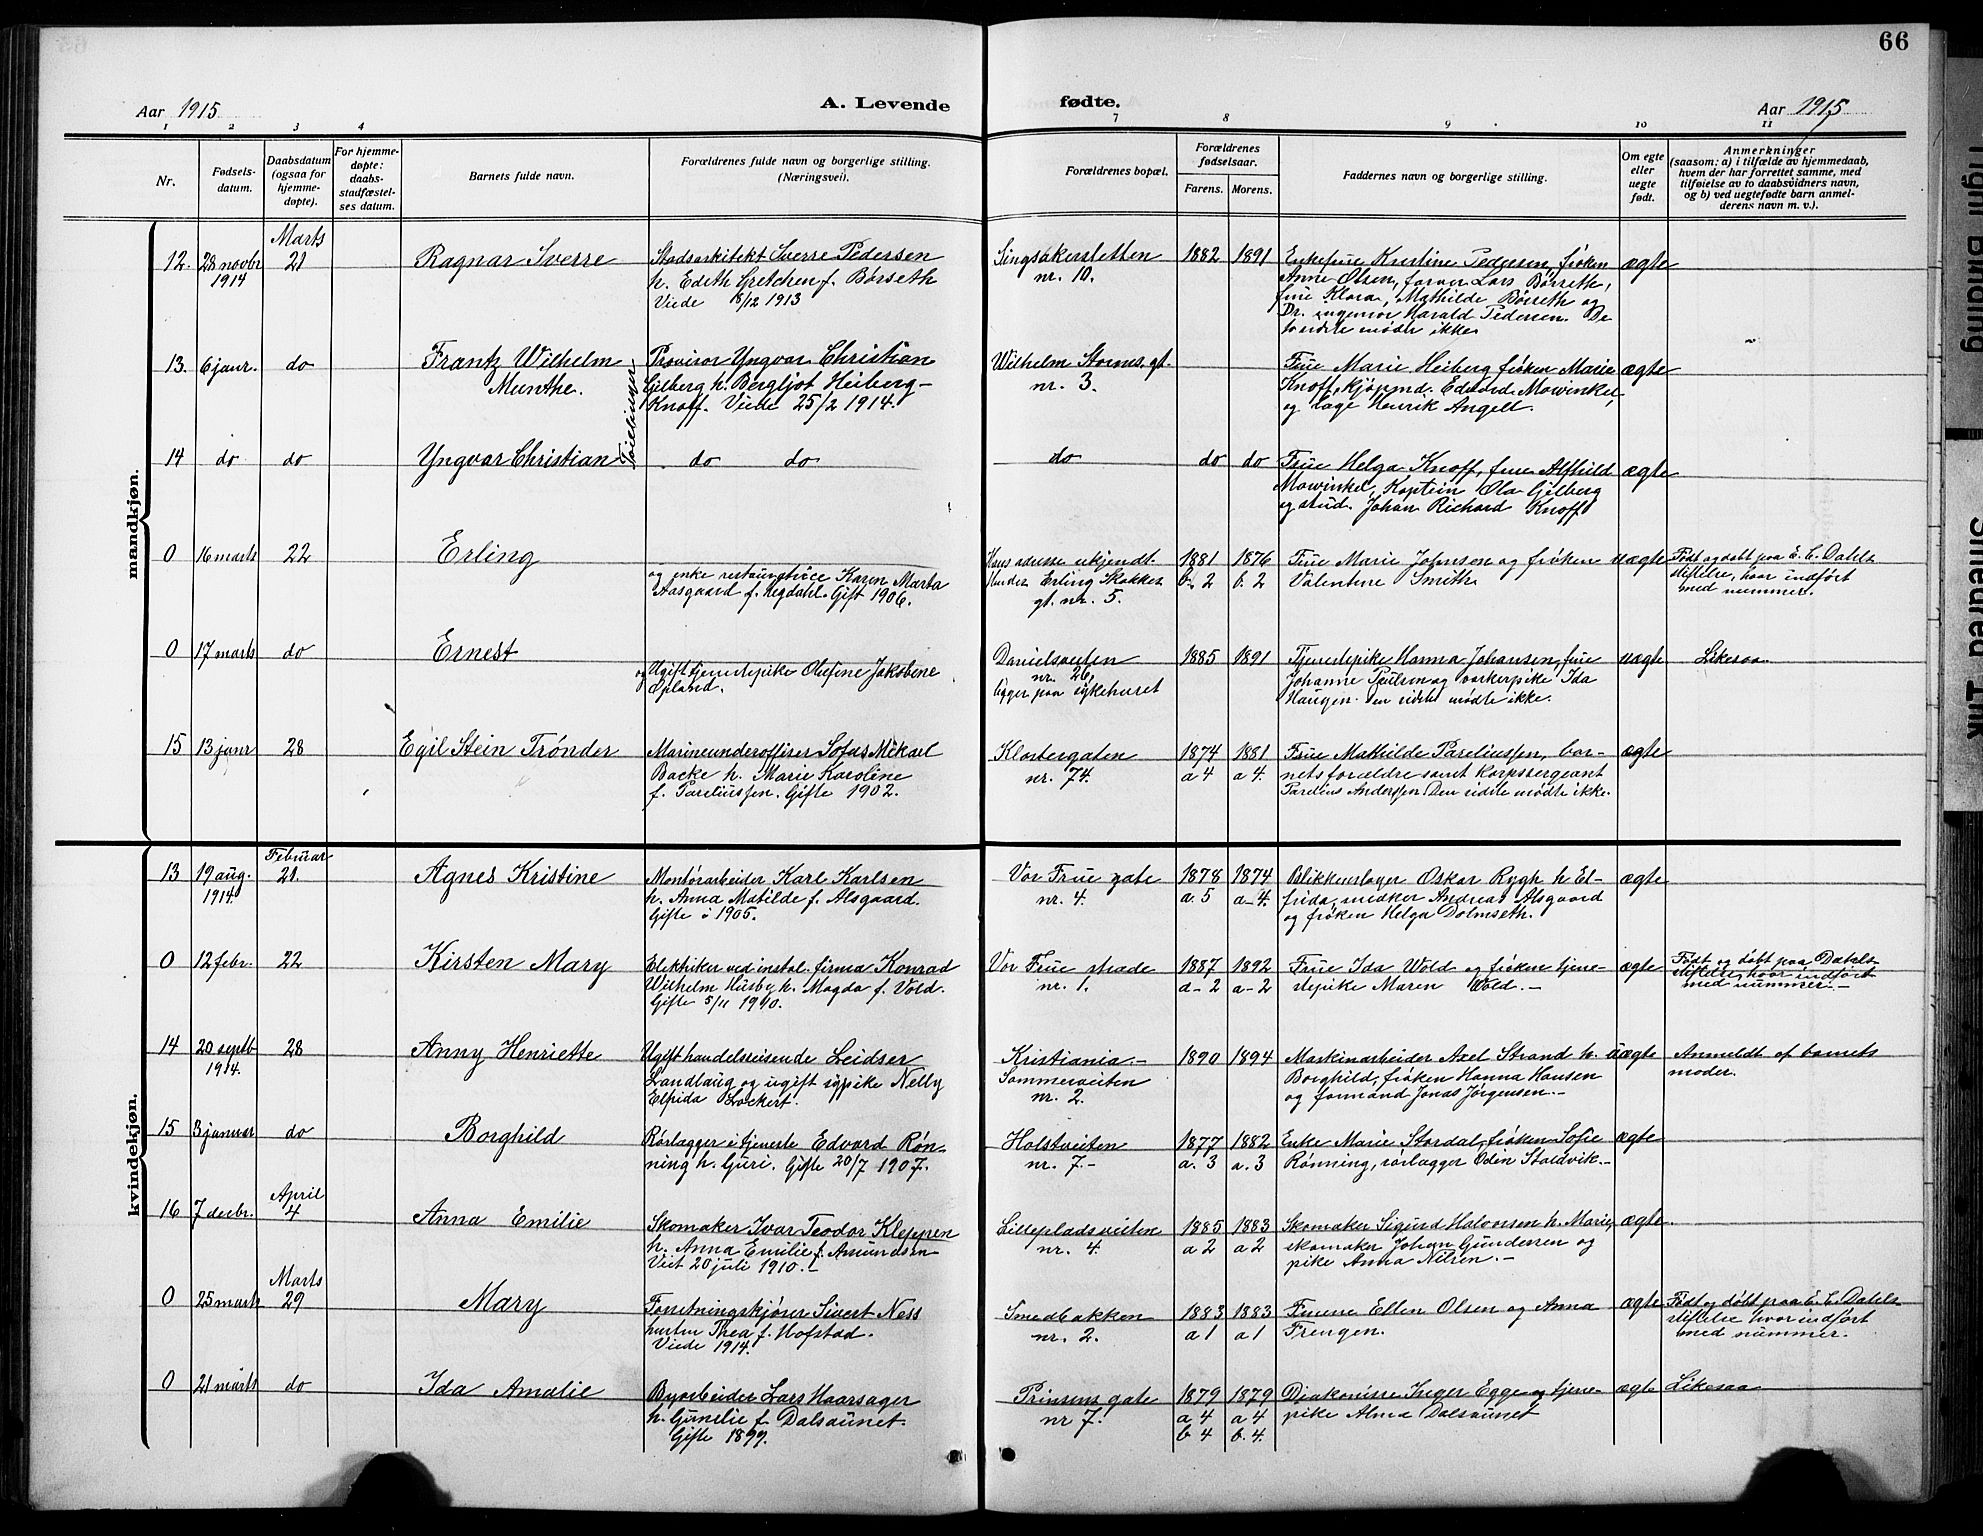 66
Aar 1915
A. Levende
fødte.
Aar 1915
1 2 3 4 7 8 9 10 11
Nr.
Fødsels-
datum.
Daabsdatum
(ogsaa for
hjemme-
døpte).
For hjemme-
døpte:
daabs-
stadfæstel-
ses datum.
Barnets fulde navn.
Forældrenes fulde navn og borgerlige stilling.
(Næringsvei).
Forældrenes bopæl.
Forældrenes
fødselsaar.
Farens. Morens.
Faddernes navn og borgerlige stilling.
Om egte
eller
uegte
født.
Anmerkninger
(saasom: a) i tilfælde av hjemmedaab,
hvem der har forrettet samme, med
tilføielse av to daabsvidners navn,
og b) ved uegtefødte barn anmel-
derens navn m. v.).
mandkjøn.
12. 28 novbr 1914
Marts 21
Ragnar Sverre
Stadsarkitekt Sverre Pedersen
h. Edith Gretchen f. Børseth
Viede 18/12 1913
Singsakersletten
nr. 10.
1882 1891
Enkefrue Kristine Pedersen, frøken
Anne Olsen, farver Lars Børseth,
frue Klara, Mathilde Børseth og
Dr. ingeniør Harald Pedersen. De
to sidste møder ikke.
ægte
13. 6 janr. do
Frantz Wilhelm
Munthe.
Tvillinger
Provisor Yngvar Christian
Gilberg h. Bergljot Heiberg-
Knoff. Viede 25/2 1914.
Wilhelm Storms gt.
nr. 3.
Frue Marie Heiberg frøken Marie
Knoff, kjøpmd. Edvard Mowinkel,
og læge Henrik Angell.
ægte
14 do do
Yngvar Christian
do do
do
do do
Frue Helga Knoff, frue Alfhild
Mowinkel, Kaptein Ola Gjelberg
og stud. Johan Richard Knoff
ægte
0 16 marts 22
Erling
og enke restauratrice Karen Marta
Aasgaard f. Negdahl. Gift 1906.
Hans adresse ukjendt.
Hendes Erling Skakkes
gt. nr. 5.
1881 1876
b. 2 b. 2
Frue Marie Johnson og frøken
Valentine Smeth.
uægte
Født og døbt paa E. C. Dahls
stiftelse, hvor indført
med nummer.
0 17 marts do
Ernest
og ugift tjenestepike Olefine Jakobine
Opland.
Danielsveiten
nr. 26,
ligger paa sykehuset
1885 1891
Tjenestepike Hanna Johansen, frue
Johanne Poulsen og vaskerpike Ida
Haugen. Den sidste mødte ikke.
uægte
Likesaa
15 13 janr 28
Egil Stein Trønder
Marineunderofficer Sofus Mikael
Backe h. Marie Karoline
f. Pareliussen. Gifte 1902.
Klostergaten
nr. 74.
1874 1881
a 4 a 4.
Frue Mathilde Pareliussen, bar-
nets forældre samt Korpssergeant
Parelius Anderssen. Den sidste mødte ikke.
ægte
kvindekjøn.
13 19 aug. 1914
Februar 21.
Agnes Kristine
Montørarbeider Karl Karlsen
h. Anna Matilde f. Alsgaard.
Gifte i 1905.
Vor Frue gate
nr. 4.
1878 1874
a. 5 a-4.
Blikkenslager Oskar Rygh h. El-
frida, snedker Andreas Alsgaard
og frøken Helga Dalmseth.
ægte
0 12 febr. 22
Kirsten Mary
Elektriker ved instal. firma Konrad
Wilhelm Husby h. Magda f. Vold.
Gifte 5/11 1910.
Vor Frue strade
nr. 1.
1887 1892
a-2 a-2
Frue Ida Wold og frøken tjene-
stepike Maren Wold.-
ægte
Født og døbt paa Dahls
stiftelse, hvor indført
med nummer.-
14 20 septb 1914. 28
Anny Henriette
Ugift handelsreisende Leidser
Landlaug og ugift sypike Nelly
Elfrida Lockert.
Kristiania.-
Sommerveiten
nr. 2.
1890 1894
Maskinarbeider Axel Strand h.
Borghild, frøken Hanna Hansen
og formand Jonas Jørgensen.-
uægte
Anmeldt af barnets
moder.
15 3 januar do
Borghild
Rørlægger i tjeneste Edvard Røn-
ning h. Guri. Gifte 20/7 1907.
Holstveiten
nr. 7.-
1877 1882
a. 3 a. 3
Enke Marie Stordal, frøken Sofie
Rønning, rørlægger Odin Stoldvik.-
ægte
16 7 decbr.
April 4
Anna Emilie
Skomaker Ivar Teodor Kleppen
h. Anna Emilie f. Amundsen
Viet 20 juli 1910.-
Lilleplads veiten
nr. 4.
1885 1883
a 2 a 2
Skomaker Sigurd Halvorsen h. Marie,
skomaker Johan Gundersen og
pike Anna Nilsen.-
ægte
0 25 marts
Marts 29
Mary
Forretningskjører Sivert Ness
hustru Thea f. Hofstad.
Viede 1914.
Smedbakken
nr. 2.
1883 1883
a 1 a 1
Fruene Ellen Olsen og Anna
Frengen.
ægte
Født og døbt paa E. C. Dahls
stiftelse hvor indført
med nummer.
0 21 marts do
Ida Amalie
Byarbeider Lars Haarsager
h. Gunelie f. Dalsaunet.
Gifte 1899.
Prinsens gate
nr 7.
1879 1879
a 4 a 4
b 4 b. 4.
Diakonisse Inger Egge og tjene-
pike Alma Dalsaunet
ægte
Likesaa